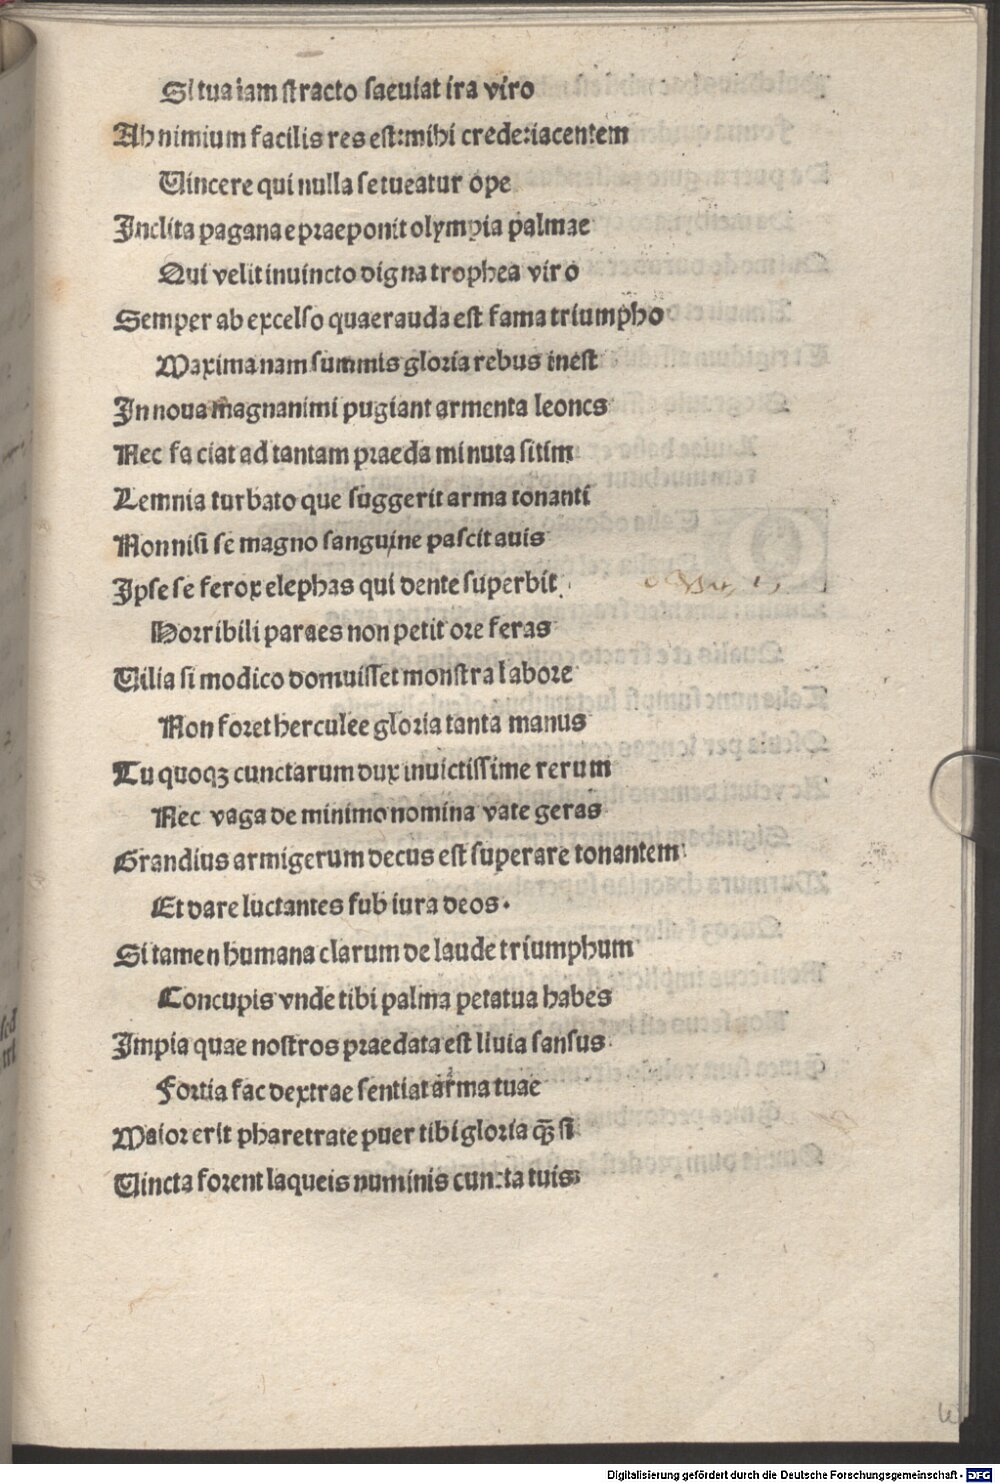 Si tua iam stracto saeuiat ira viro
Ah nimium facilis res est:mihi crede:iacentem
Uincere qui nulla se tueatur ope
Inclita paganae praeponit olympia palmae
Qui velit inuincto digna trophea viro
Semper ab excelso quaerauda est fama triumpho
Maxima nam summis gloria rebus inest
In noua magnanimi pugiant armenta leones
Nec faciat ad tantam praeda minuta sitim
Lemnia turbato que suggerit arma tonanti
Non nisi se magno sanguine pascit auis
Ipse se ferox elephas qui dente superbit
Horribili paraes non petit ore feras
Uilia si modico domuisset monstra labore
Non foret herculee gloria tanta manus
Tu quoqꝫ cunctarum dux inuictissime rerum
Nec vaga de minimo nomina vate geras
Grandius armigerum decus est superare tonantem
Et dare luctantes sub iura deos.
Si tamen humana clarum de laude triumphum
Concupis vnde tibi palma petatua habes
Impia quae nostros praedata est liuia sansus
Fortia fac dextrae sentiat arma tuae
Maior erit pharetrate puer tibi gloria q̄ꝫ si
Uincta forent laqueis numinis cuncta tuis
Digitalisierung gefördert durch die Deutsche Forschungsgemeinschaft - DFG